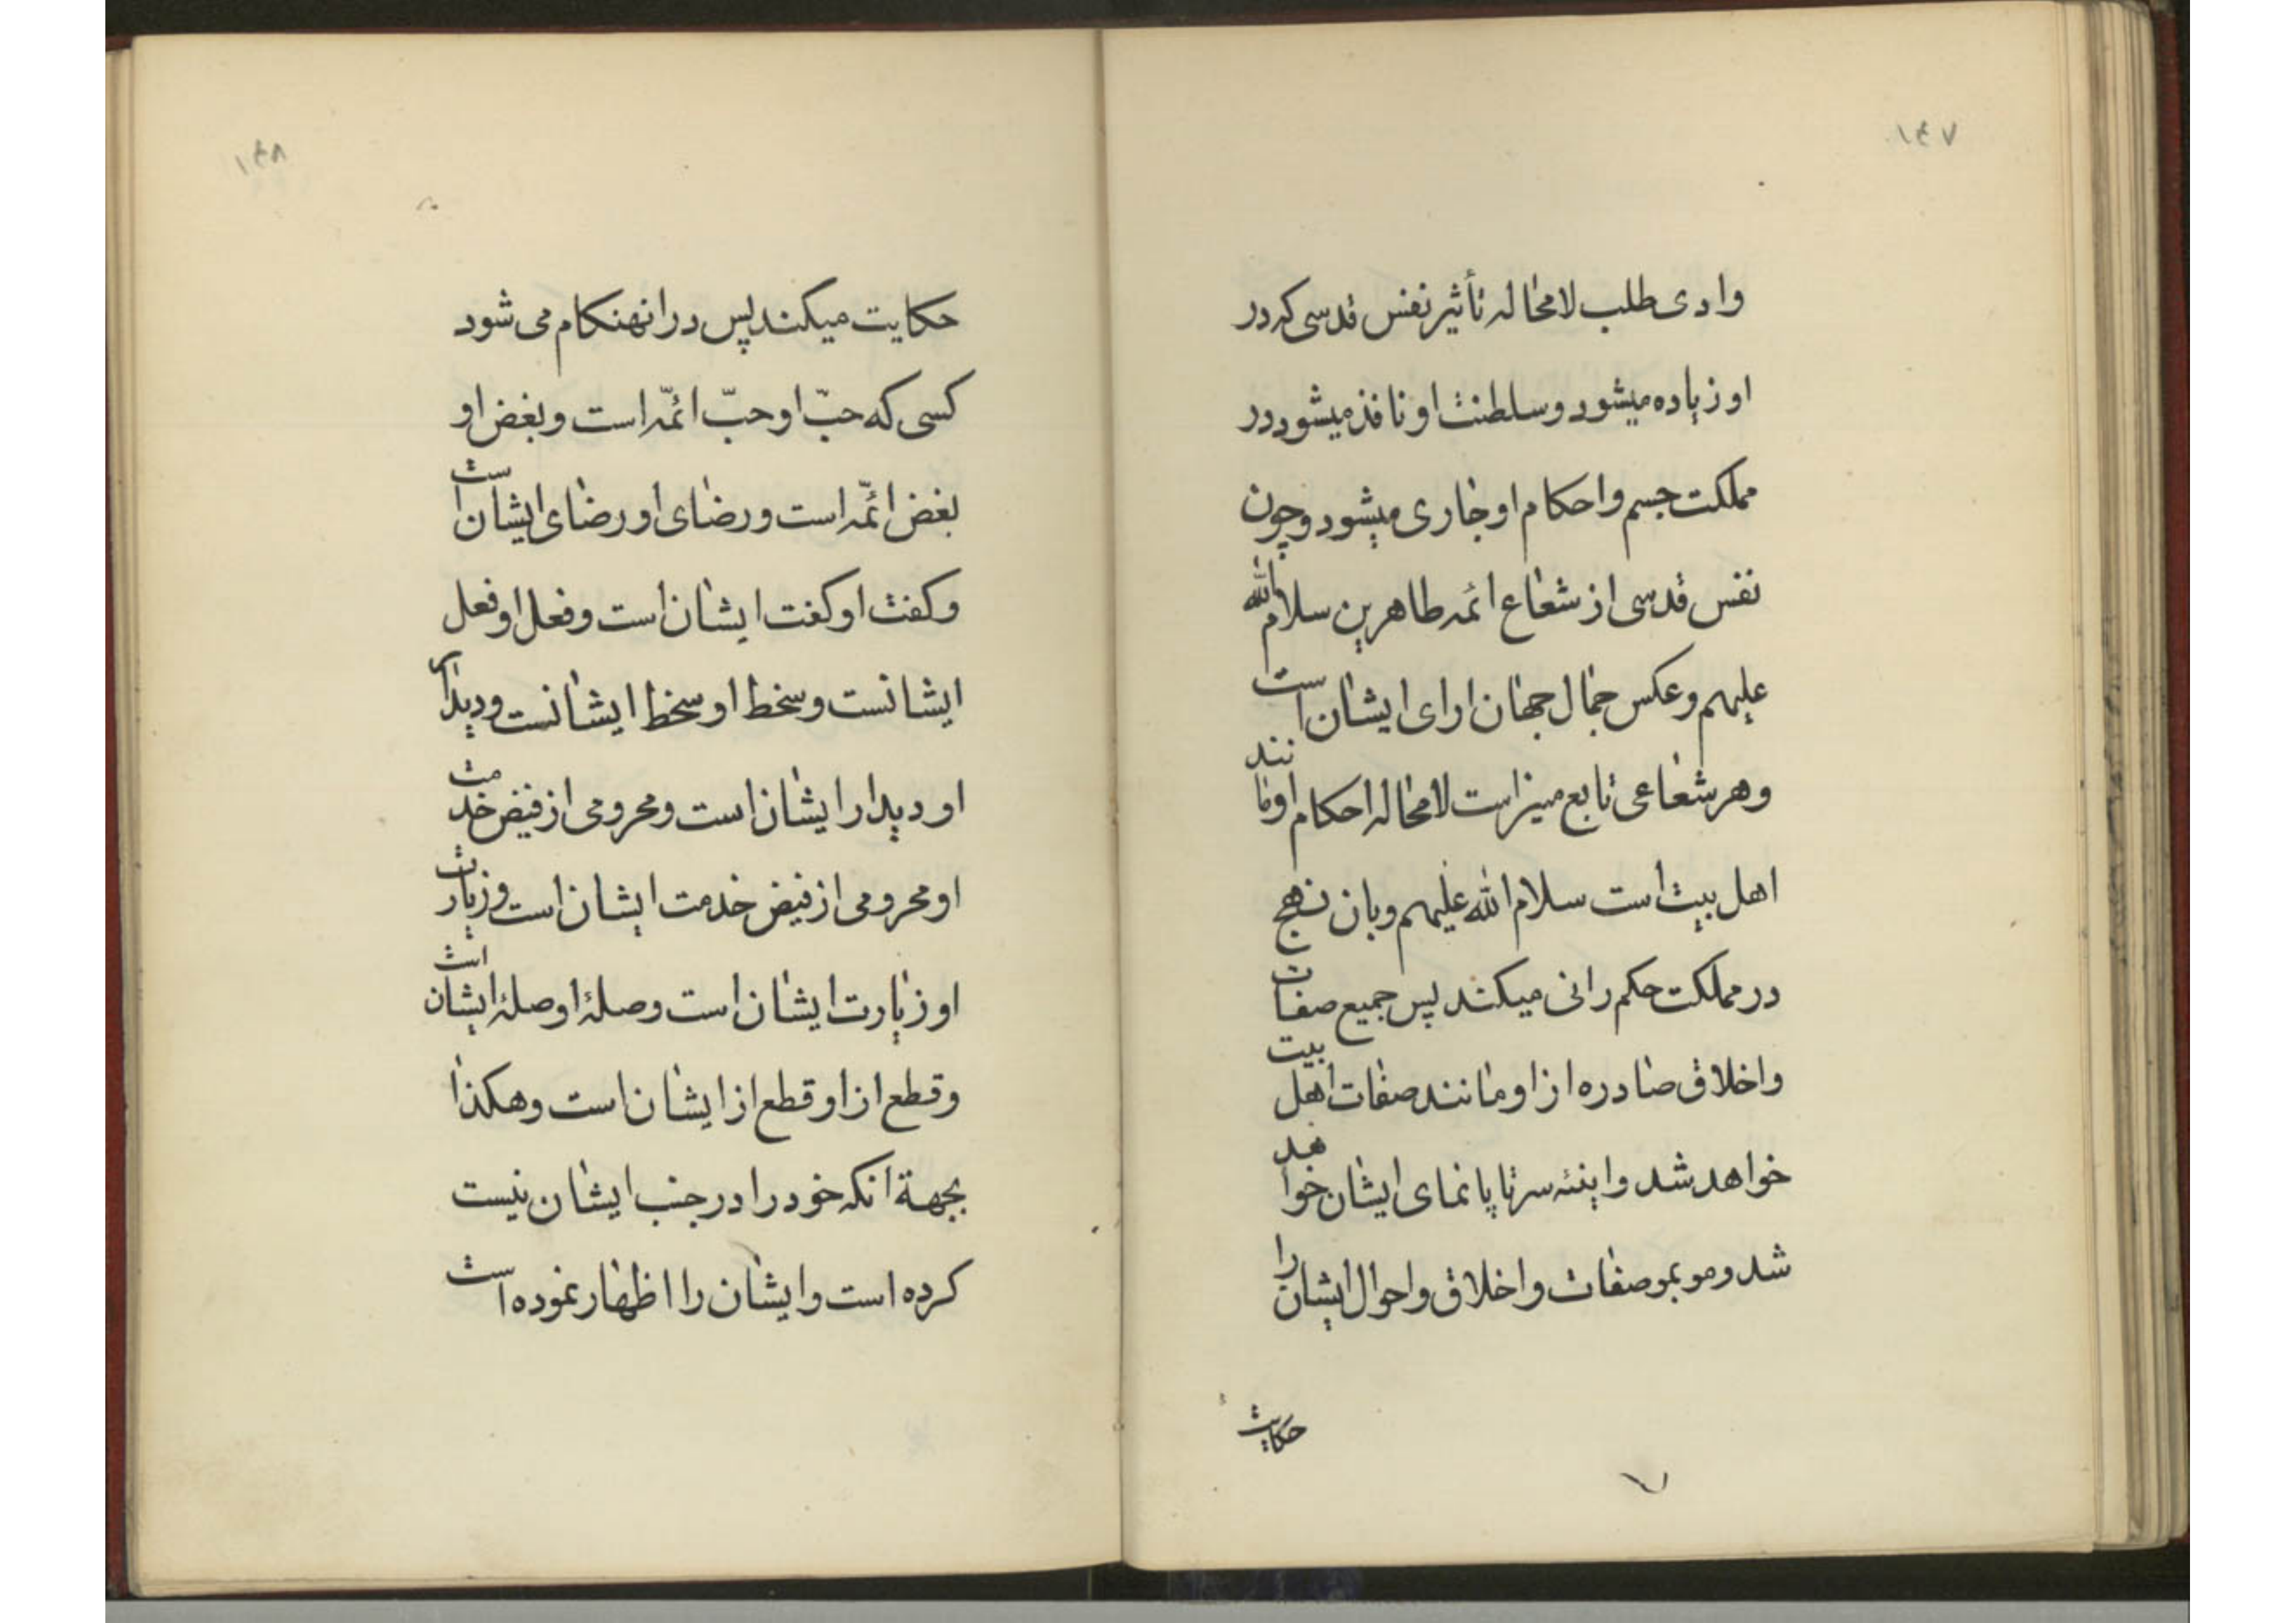 ۱۴۷
وادی طلب لامحاله تأثیر نفس قدسی که در
او زیاده میشود و سلطنت او نافذ میشود در
مملکت جسم و احکام او جاری میشود و چون
نفس قدسی از شعاع ائمه طاهرین سلام الله
علیهم و عکس جمال جهان ارای ایشان است
و هر شعاعی تابع منیر است لامحاله احکام او مانند
اهل بیت است سلام الله علیهم و بان نهج
در مملکت حکم رانی میکند پس جمیع صفات
و اخلاق صادره از او مانند صفات اهل بیت
خواهد شد و اینئه سرتاپا نمای ایشان خواهد
شد و مو بمو صفات و اخلاق و احوال ایشان را
حکایت
۱۴۸
حکایت میکند پس در انهنکام می شود
کسی که حبّ او حبّ ائمّه است و بغض او
بغض ائمّه است و رضای او رضای ایشان است
و کفت او کفت ایشان است و فعل او فعل
ایشانست و سخط او سخط ایشانست و دیدار
او دیدار ایشان است و محرومی از فیض خدمت
او محرومی از فیض خدمت ایشان است و زیارت
او زیارت ایشان است و صلۀ او صلۀ ایشان است
و قطع از او قطع از ایشان است و هکذا
بجهة انکه خود را در جنب ایشان نیست
کرده است و ایشان را اظهار نموده است